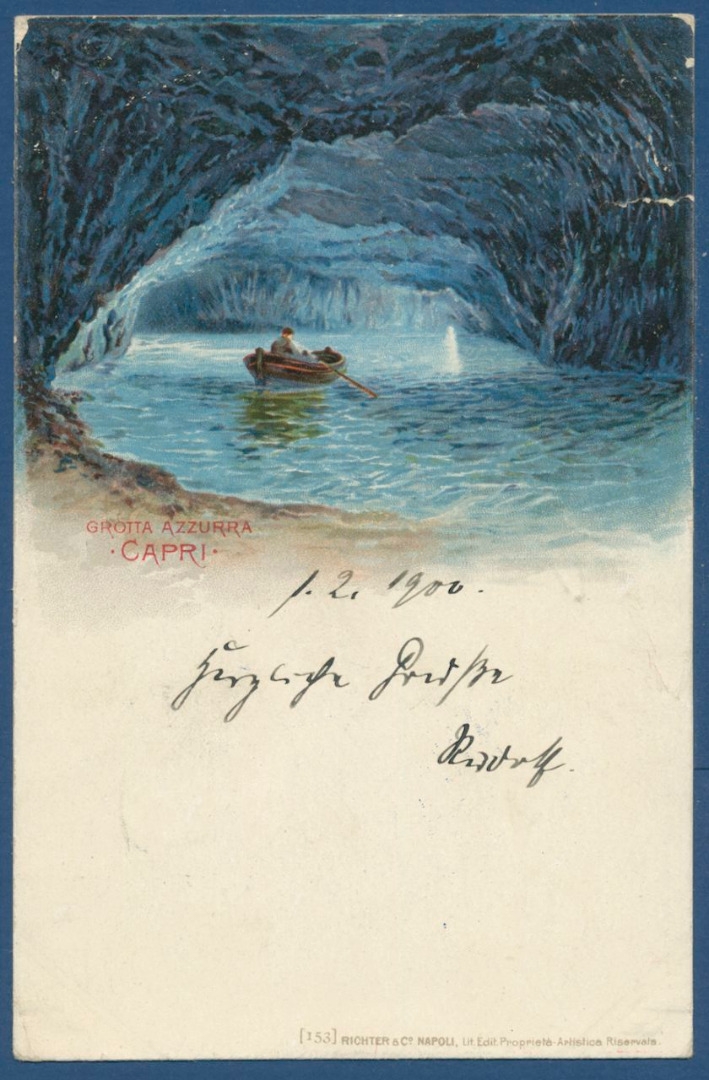 GROTTA AZZURRA
· CAPRI ·
1. 2. 1900.
Herzliche Grüße
Rudolf.
[153] RICHTER & Co. NAPOLI, Lit. Edit. Proprietà-Artistica Riservata.